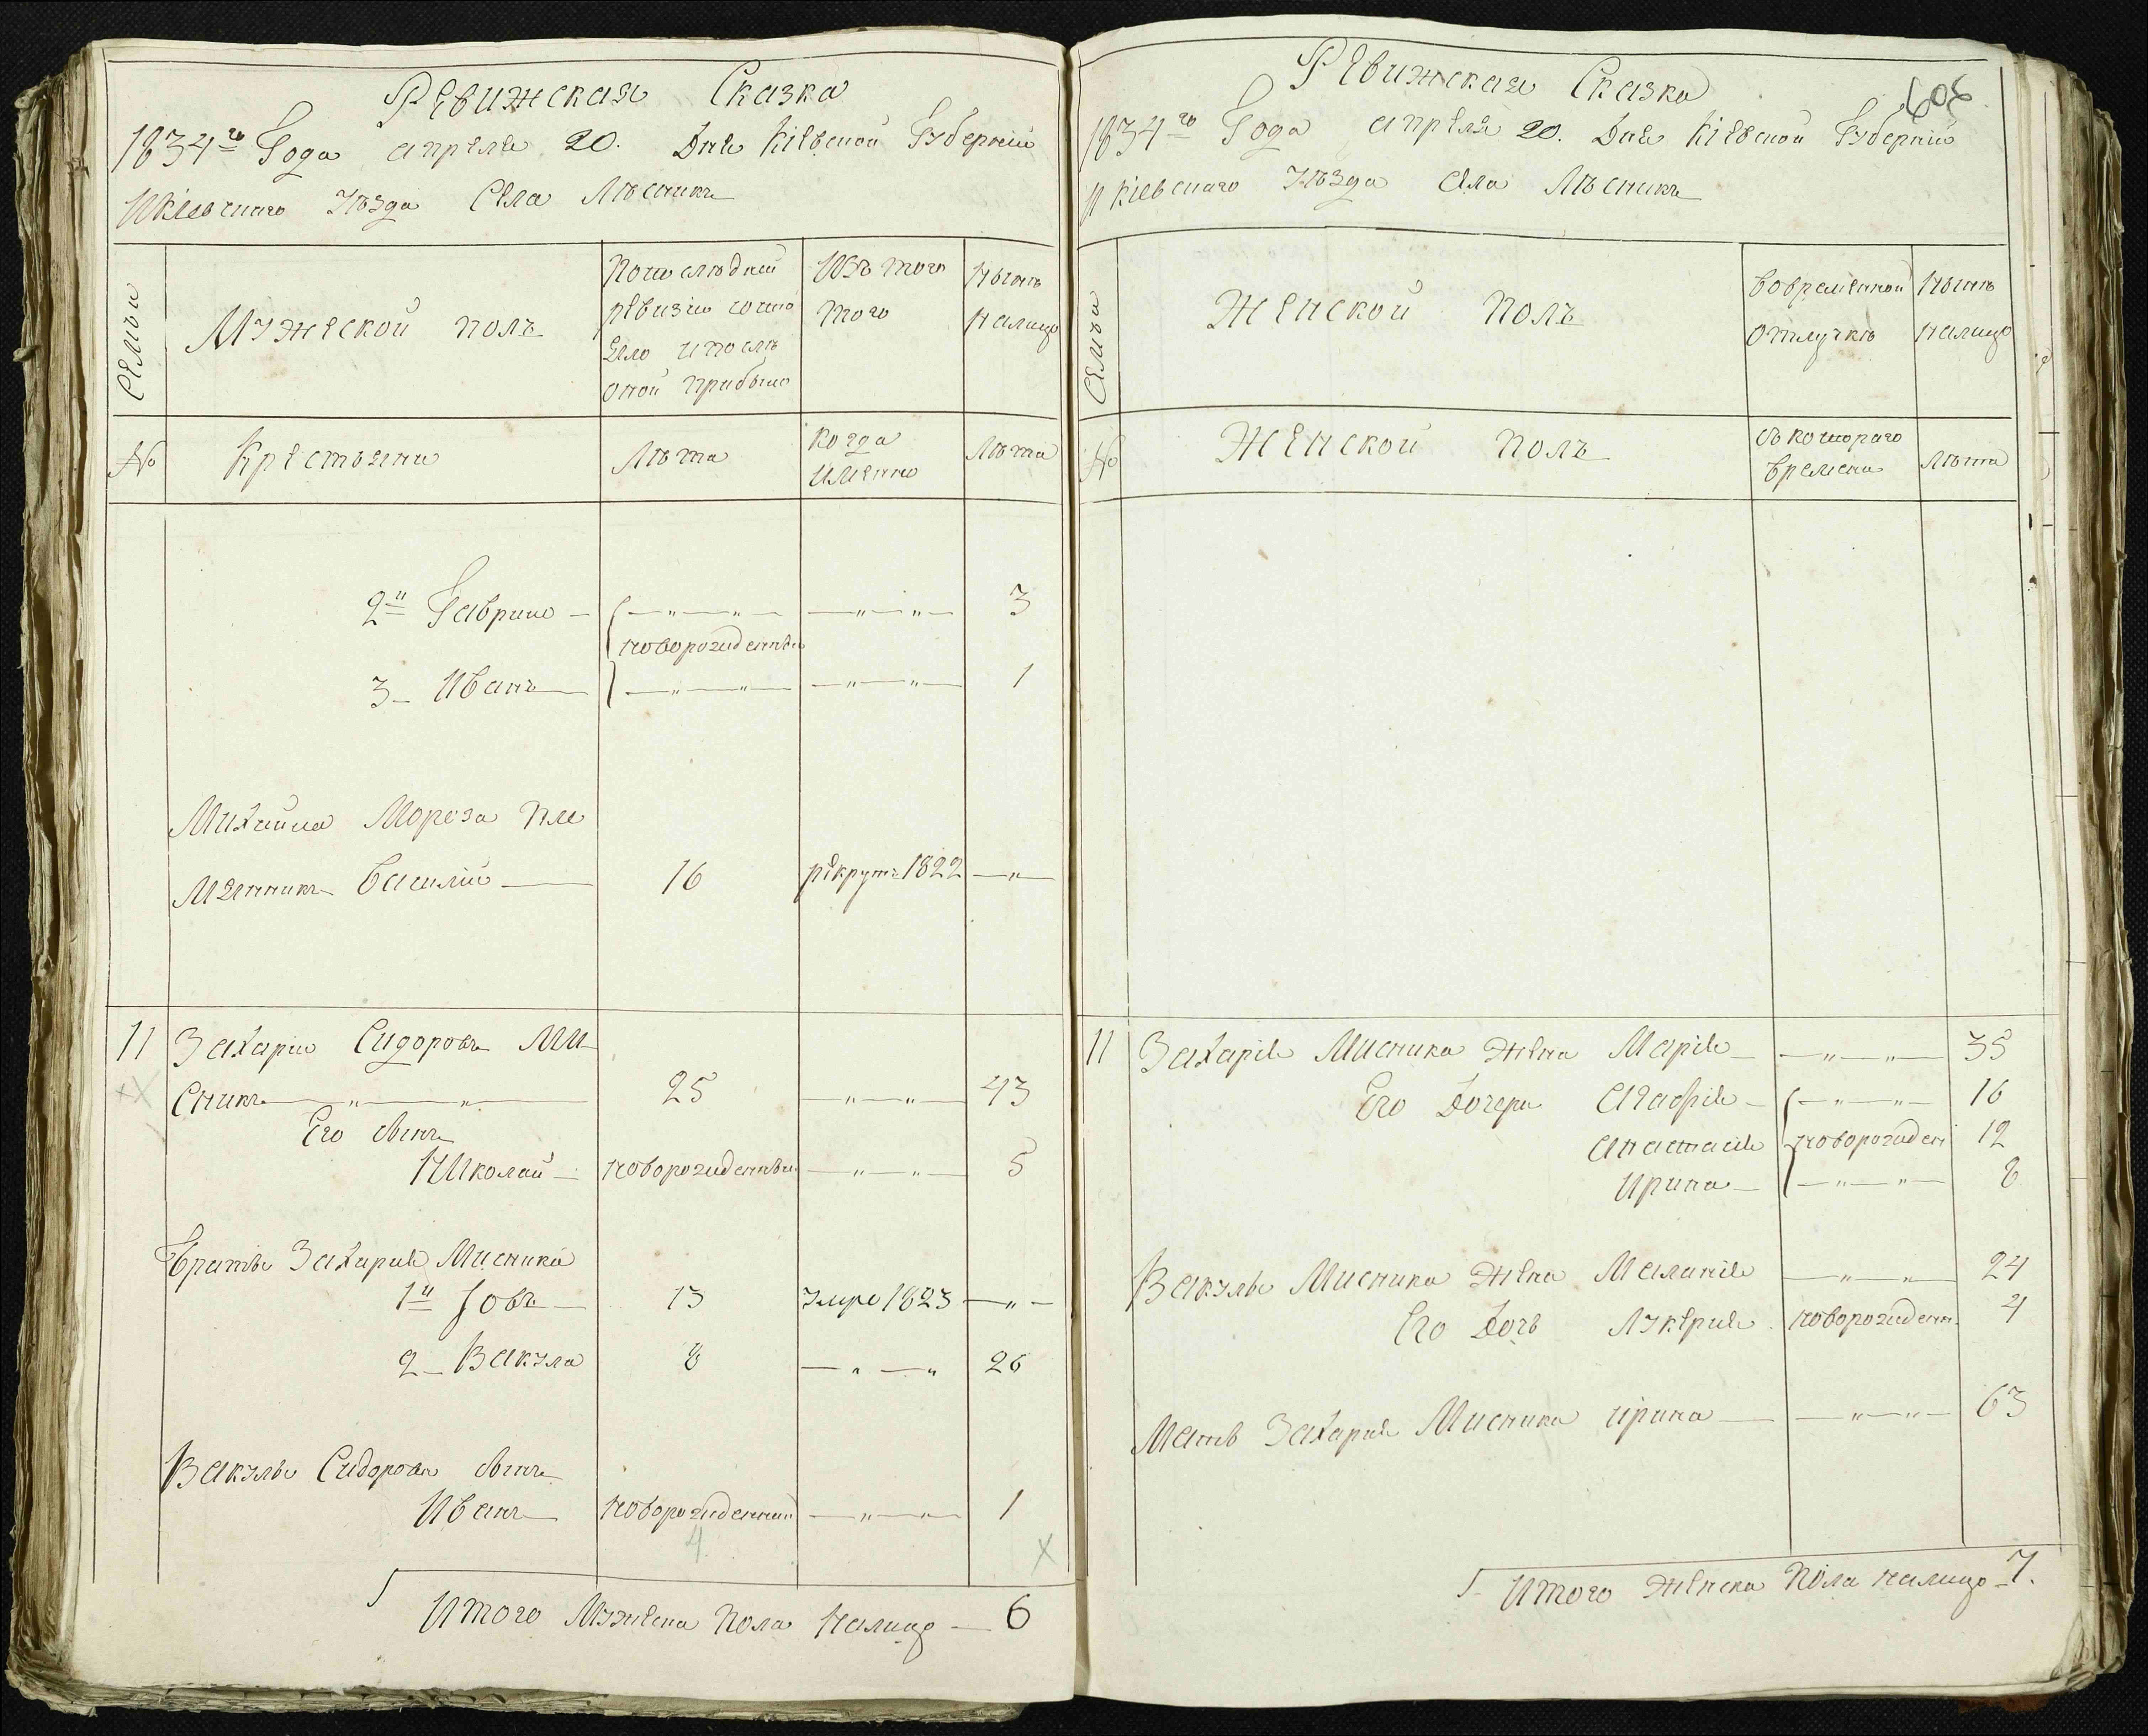 Ревижская Сказка
1834го Года апреля 20. Дня Кіевской Губерніи
И Кіевского Уѣзда Села Лѣсникъ
Семьи
Мужеской полъ
По последней
ревизіи состо
яло и послѣ
оной прибыло
Изъ того
того
Нынѣ
налицо
№
Крестьяни
Лѣта
когда
именно
Лѣта
2й Гаврило — — „ — „ — — „ — „ — 3
новорожденныи
3 — Иванъ — — „ — „ — — „ — „ — 1
Михайла Мороза пле
мянникъ Василій — 16 рекрутъ 1822 — „ —
11 Захарій Сидоровъ Ми
сникъ — „ — „ — 25 — „ — „ — 43
Его сынъ
Николай — новорожденныи — „ — „ — 5
Братья Захария Мисника
1й Іовъ — 13 Умре 1823 — „ —
2 — Вакула 8 — „ — „ 26
Вакулы Сидорова сынъ
Иванъ — новорожденнии — „ — „ — 1
4
Х
Итого Мужеска Пола налицо — 6
Ревижская Сказка
606
1834го Года апреля 20. Дня Кіевской Губерніи
И Кіевского Уѣзда Села Лѣсникъ
Семьи
Женской Полъ
Во временной
отлучкѣ
Нынѣ
налицо
№
Женской Полъ
съ которого
времени
Лѣта
11 Захарія Мисника жена Марія — — „ — „ — 35
Его Дочери Агафия — — „ — „ — 16
Анастасия новорожден 12
Ирина — — „ — „ — 8
Вакулы Мисника жена Маланія — „ — „ — 24
Его Дочь Лукерия новорожденн. 4
Мать Захария Мисника Ирина — — „ — „ — 63
Итого женска Пола налицо — 7.